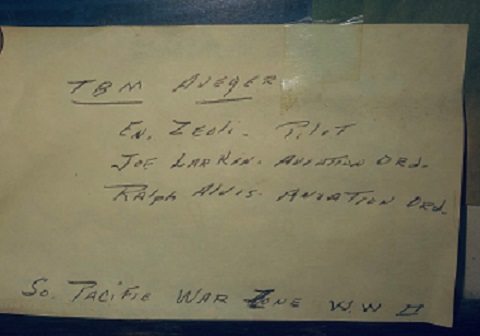 TBM AVEGER
EN. ZEOLI. PILOT
JOE LARKIN. AVIATION ORD.
RALPH ALVIS. AVIATION ORD.
SO. PACIFIC WAR ZONE W.W II